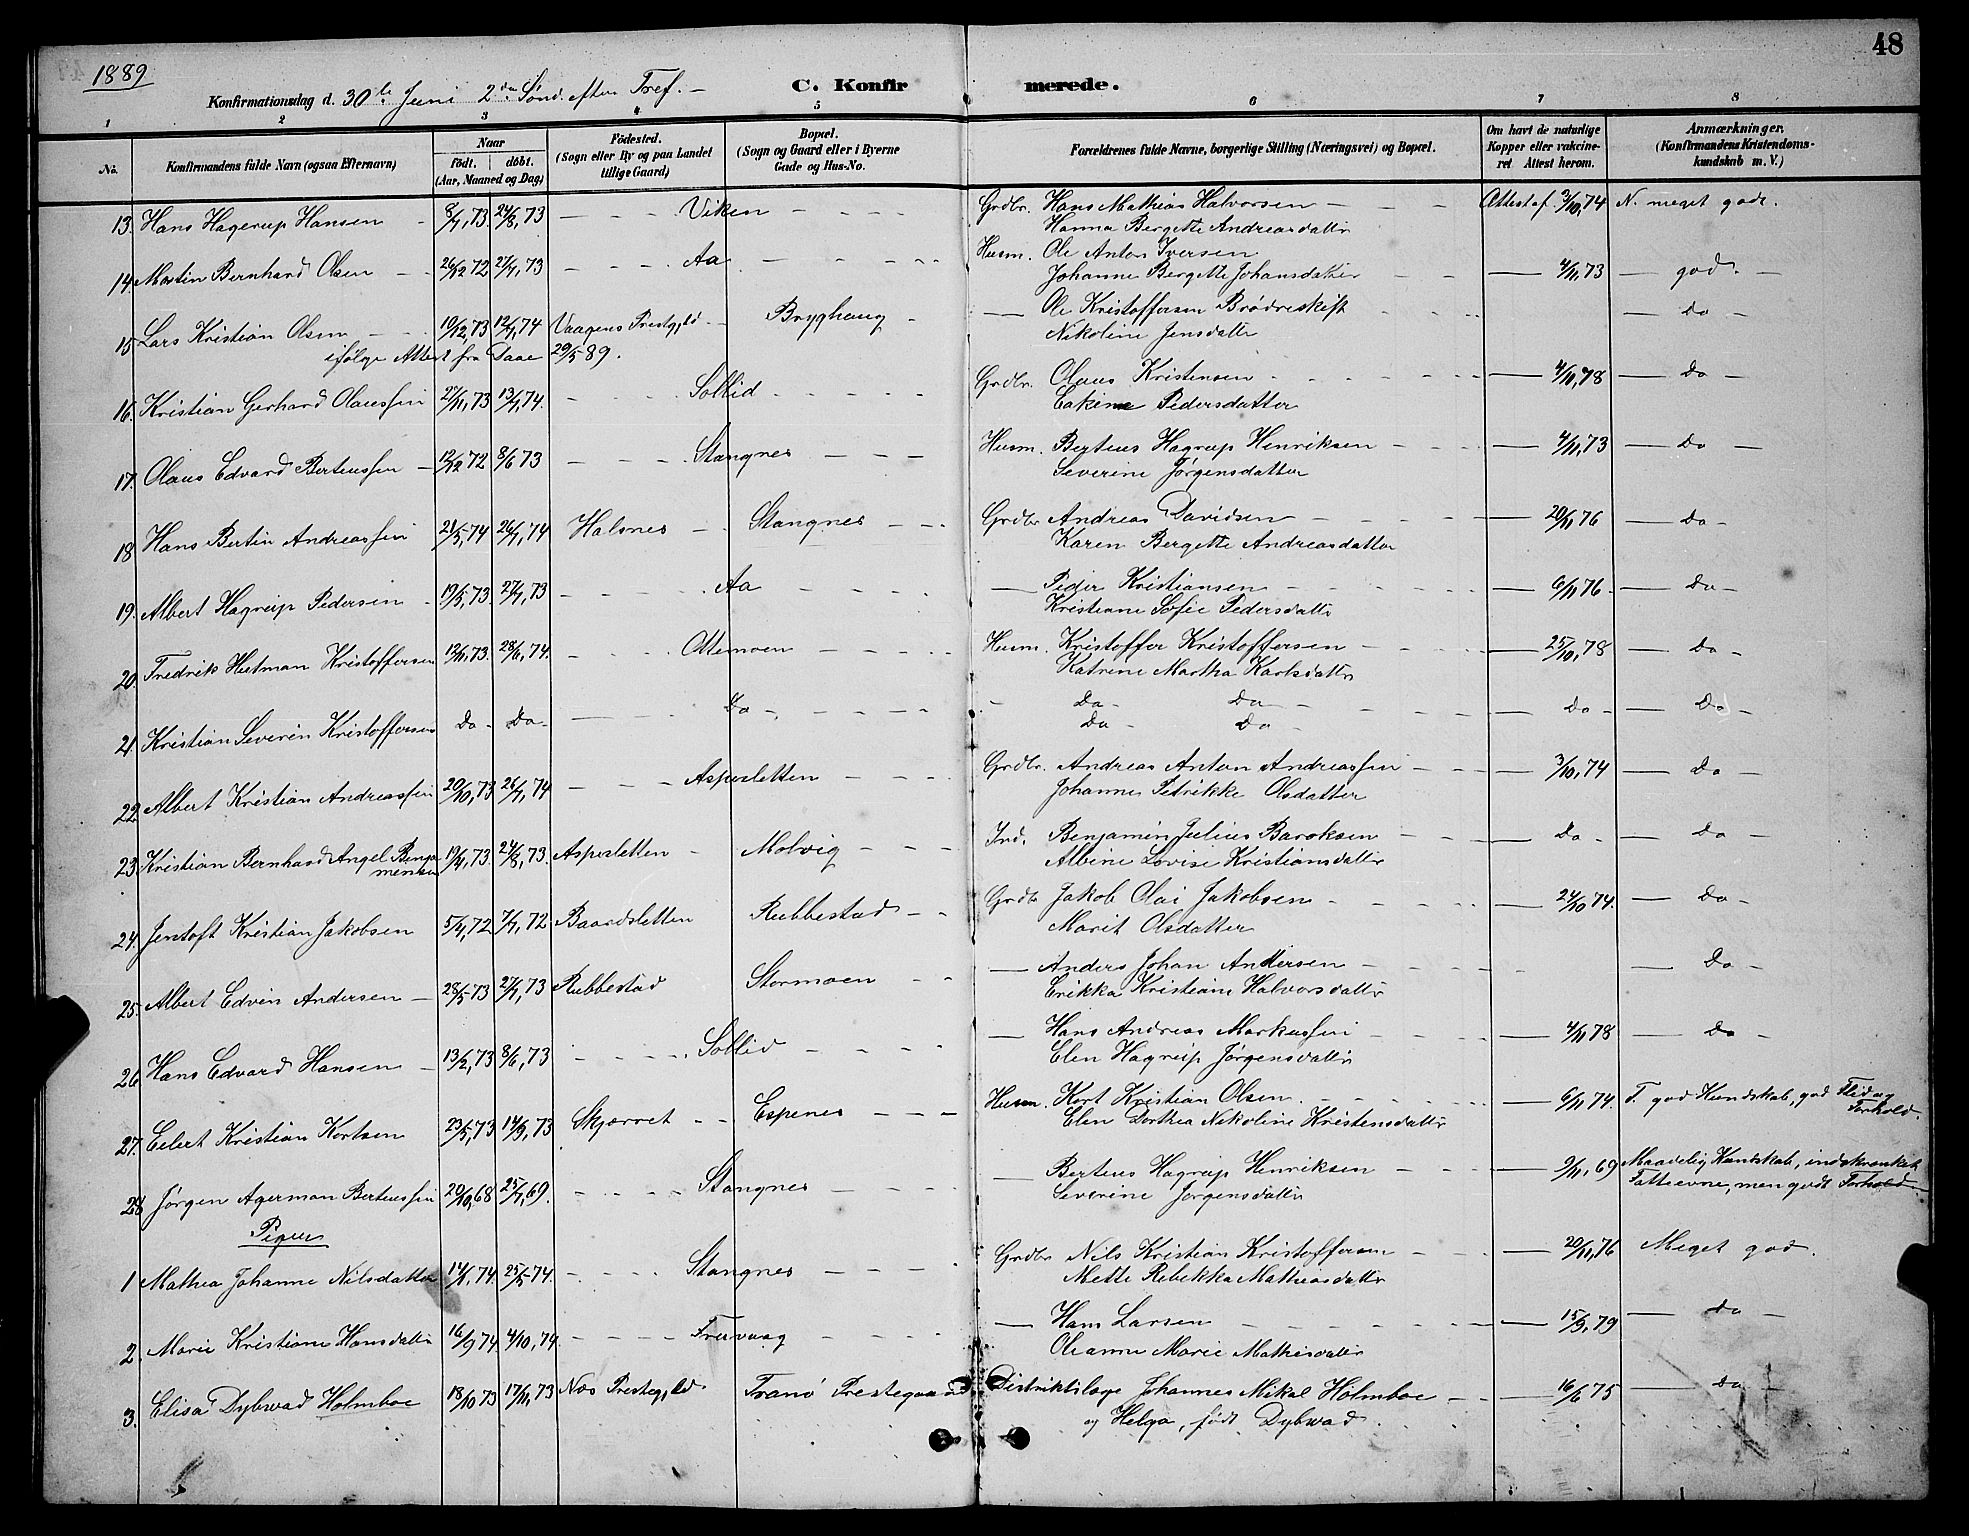 48
1889
Konfirmationsdag d. 30te Juni 2den Sønd. efter Tref. —
C. Konfir merede.
1 2 3 4 5 6 7 8
No. Konfirmandens fulde Navn (ogsaa Efternavn) Naar Födt. döbt. (Aar, Maaned og Dag) Födested. (Sogn eller By og paa Landet tillige Gaard) Bopæl. (Sogn og Gaard eller i Byerne Gade og Hus-No. Forældrenes fulde Navne, borgerlige Stilling (Næringsvei) og Bopæl. Om havt de naturlige Kopper eller vakcineret. Attest herom. Anmærkninger. (Konfirmandens Kristendomskundskab m. V.)
13. Hans Hagerup Hansen 8/7,73 24/8,73 Viken Grdbr. Hans Mathias Halvorsen Attest af 3/10,74 N. meget god.
Hanna Bergette Andreasdattr
14. Martin Bernhard Olsen 26/12 72 27/7,73 Aa Husm. Ole Anton Iversen
Johanne Bergette Johansdatter 4/11,73 god.
15. Lars Kristian Olsen 19/12,73 12/7,74 Vaagens Prestgjld Bryghaug Ole Kristoffersen Brødreskift Do
Nikoline Jensdattr
ifølge Attest fra Daae 29/5 89.
16. Kristian Gerhard Olaussen 27/11,73 13/7,74. Sollid Grdbr. Olaus Kristensen 4/11,78 Do
Eakine Pedersdatter
17. Olaus Edvard Berteussen 12/12 72 8/6 73 Stangnes Husm. Berteus Hagrup Henriksen 4/11,73 Do
Severine Jørgensdatter
18. Hans Bertin Andreassen 21/5,74 26/7,74 Halsnes Stangnes Grdbr Andreas Davidsen 20/11 76 Do
Karen Bergette Andreasdatter
19. Albert Hagrup Pedersen 19/5,73. 27/7,73 Aa Peder Kristiansen 6/11 76 Do
Kristiane Sofie Pedersdattr
20. Fredrik Hutman Kristoffersen 12/11,73. 28/6,74. Ottemoen Husm. Kristoffer Kristoffersen 25/10,78 Do
Katrine Martha Karlsdattr
21. Kristian Severin Kristoffersen Do Do Do Do Do Do Do
Do Do
22. Albert Kristian Andreassen 20/10,73 26/7,74 Aspesletten Grdbr. Andreas Anton Andreassen 3/10,74 Do
Johanne Petrikke Olsdatter
23. Kristian Bernhard Angel Benja 19/4,73 24/8,73. Aspesletten Molvig Ind. Benjamin Julius Baroksen Do Do
mensen Albine Lovise Kristiansdattr
24. Jentoft Kristian Jakobsen 5/4,72 7/7,72 Baardsletten Rubbestad Grdbr Jakob Olai Jakobsen 24/10 74. Do
Marit Olsdatter
25. Albert Edvin Andersen 28/5 73 27/7,73 Rubbestad Stormoen Anders Johan Andersen Do
Erikka Kristiane Halvorsdattr
26. Hans Edvard Hansen 13/2,73 8/6,73 Sollid Hans Andreas Markussen 4/11 78 Do
Elen Hagrup Jørgensdattr
27. Eilert Kristian Kortsen 23/5,73 14/9,73 Skjærret Espenes Husm. Kort Kristian Olsen 6/11 74. T. god Kundskab, god Flid og Forhold.
Elen Dorthea Nikoline Kristensdattr
28. Jørgen Agerman Berteussen 20/10,68 25/7,69. Stangnes Berteus Hagrup Henriksen 9/11,69 Maadelig Kundskab, indskrænket
Severine Jørgensdattr Fatteevne, men godt Forhold
Piger
1 Mathea Johanne Nilsdatter 14/1,74. 25/5 74. Stangnes Grdbr Nils Kristian Kristoffersen 20/11,76 Meget god.
Mette Rebekka Mathiasdattr
2. Marie Kristiane Hansdattr 16/9 74 4/10,74. Trævaag Hans Larsen 15/9,79 Do
Oleanne Marie Mathisdattr
3. Elisa Dybwad Holmboe 18/10 73 17/11,73 Næs Prestegjld Tranø Prestegaard Distriktslæge Johannes Mikal Holmboe 16/6 75 Do
og Helga, født Dybwad